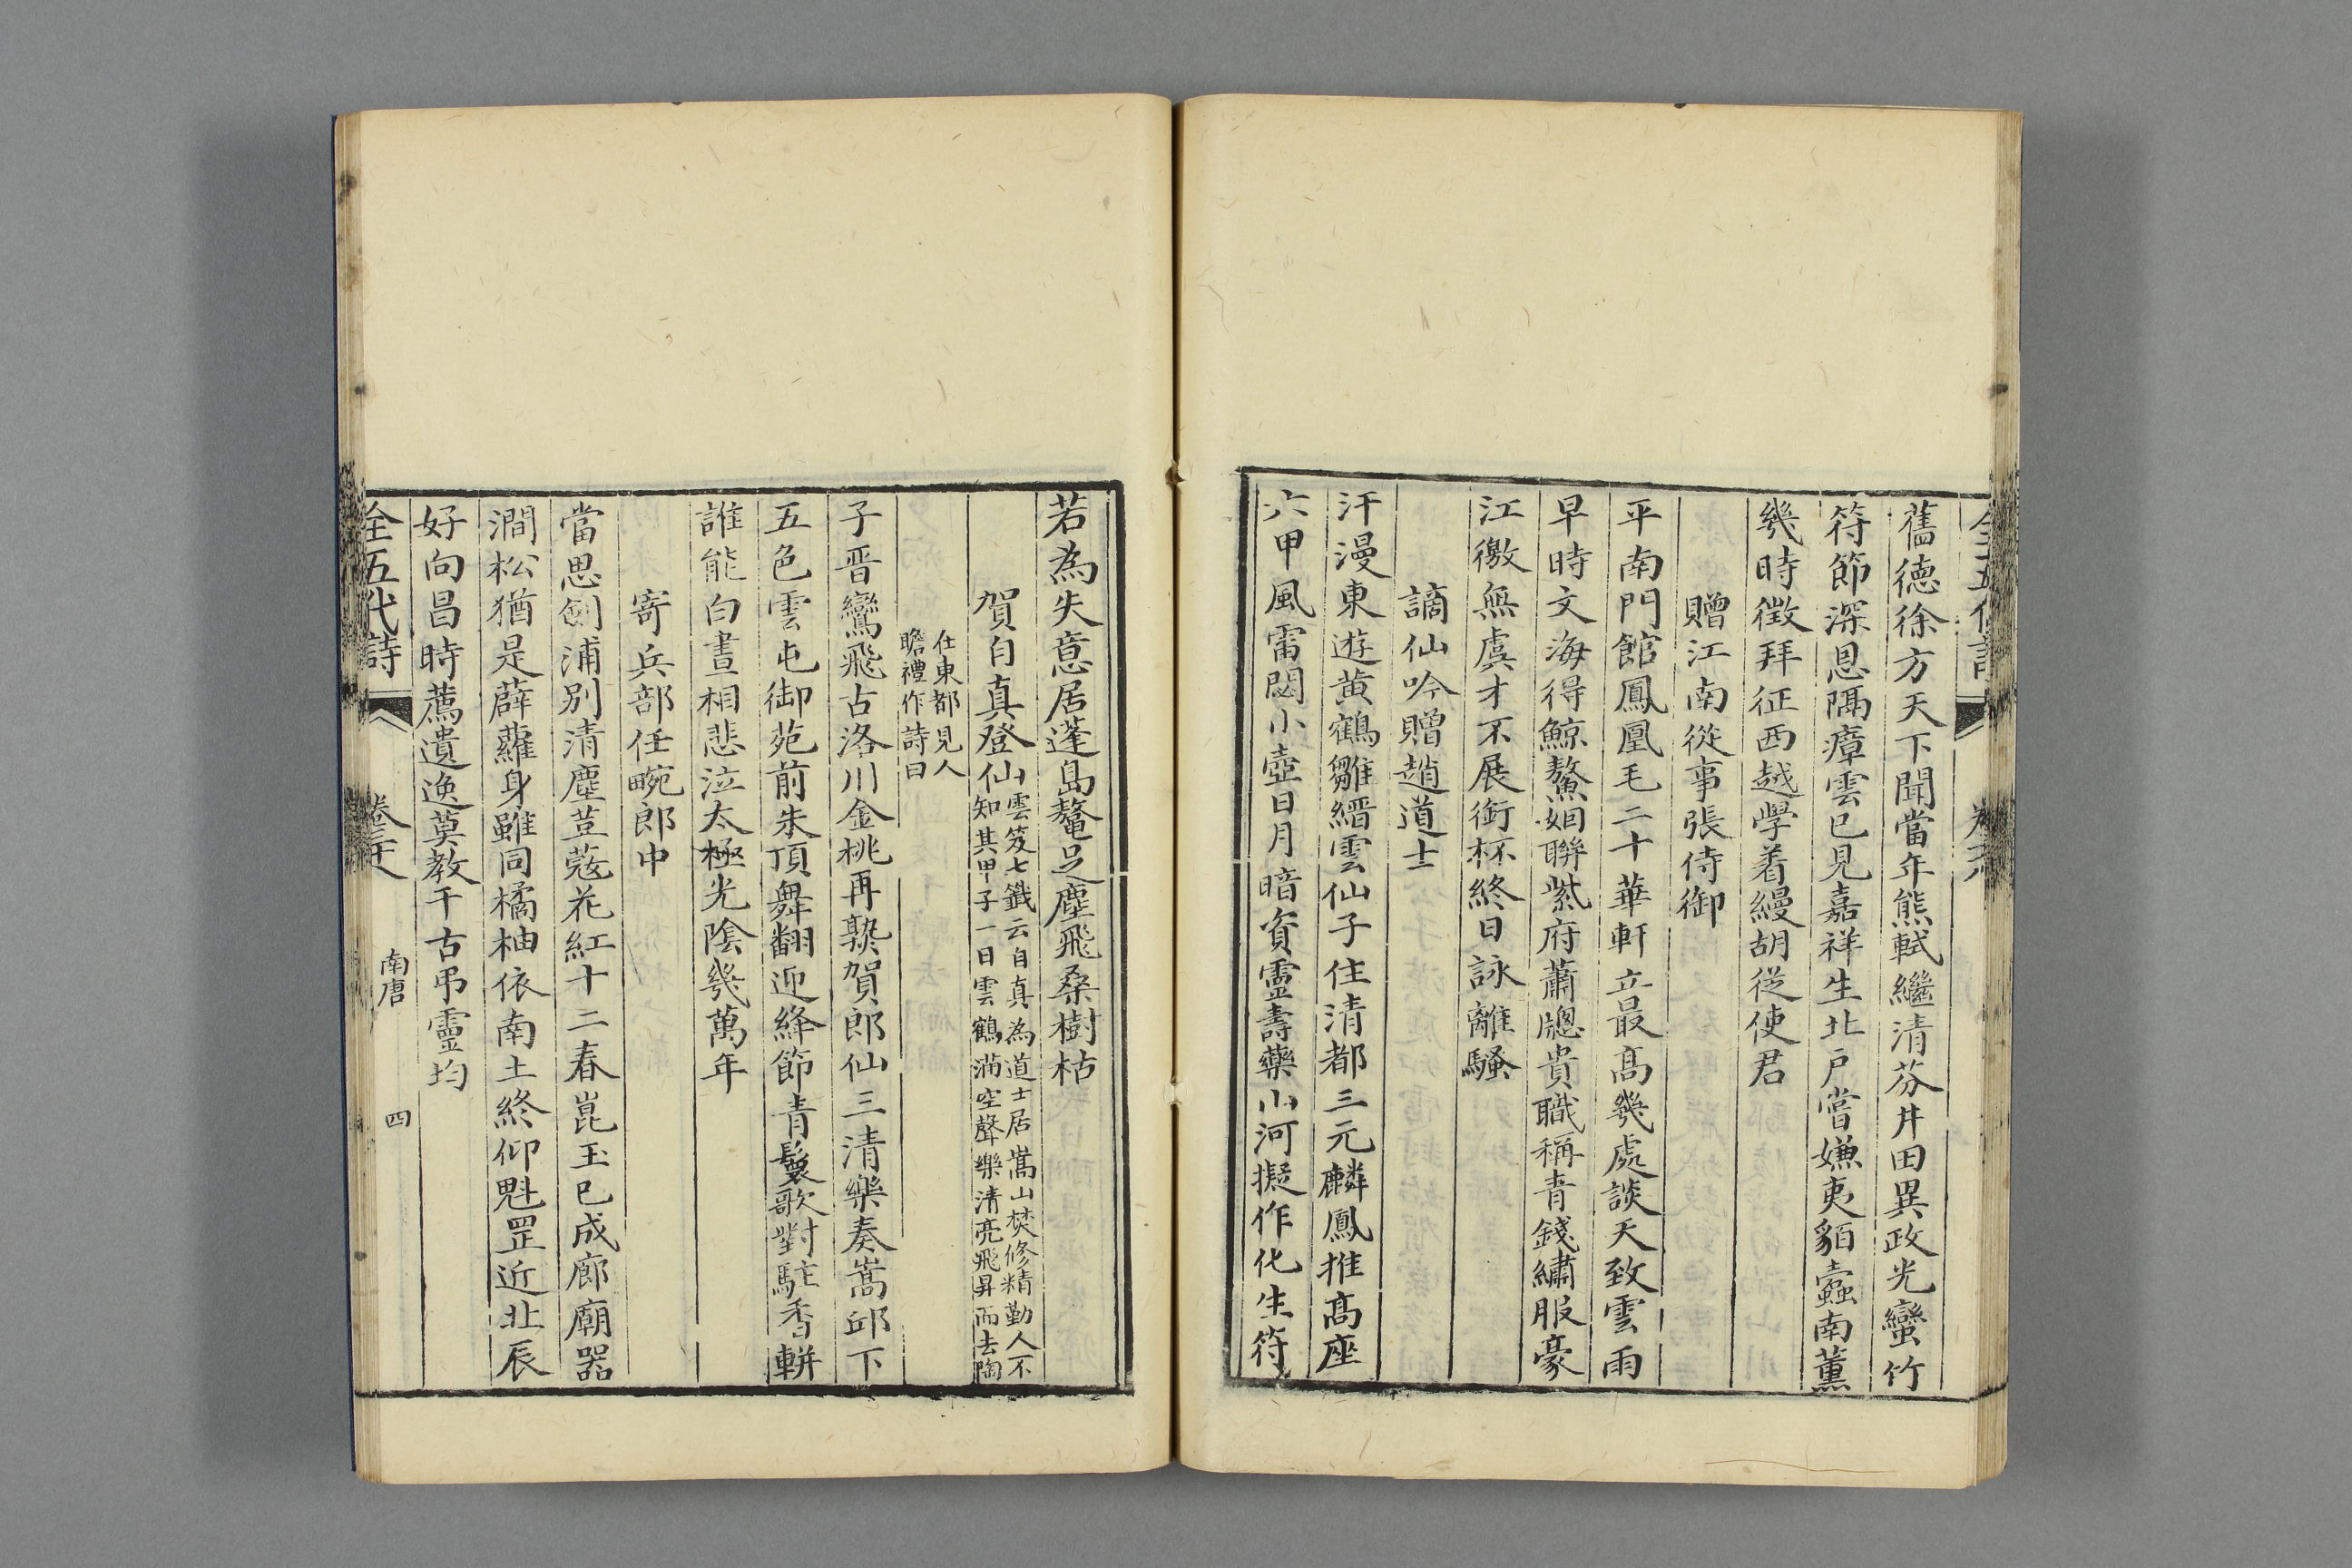 舊德徐方天下聞當年熊軾繼清芬井田異政光蠻竹
符節深恩隔瘴雲已見嘉祥生北戶嘗嫌夷貊蠹南薰
幾時徵拜征西越學着縵胡從使君
贈江南從事張侍御
平南門館鳳凰毛二十華軒立最高幾處談天致雲雨
早時文海得鯨鰲姻聯紫府蕭牕貴職稱青錢繡服豪
江徼無虞才不展銜杯終日詠離騷
謫仙吟贈趙道士
汗漫東遊黃鶴雛縉雲仙子住清都三元麟鳳推高座
六甲風雷閟小壺日月暗資靈壽藥山河擬作化生符
若為失意居蓬島鼇足塵飛桑樹枯
賀自真登仙雲笈七籤云自真為道士居嵩山焚修精勤人不
知其甲子一日雲鶴滿空聲樂清亮飛昇而去陶
仕東都見人
瞻禮作詩曰
子晋鸞飛古洛川金桃再熟賀郎仙三清樂奏嵩邱下
五色雲屯御苑前朱頂舞翻迎絳節青鬟歌對駐香軿
誰能白晝相悲泣太極光陰幾萬年
寄兵部任畹郎中
當思劍浦別清塵荳蔻花紅十二春崑玉已成廊廟器
澗松猶是薜蘿身雖同橘柚依南土終仰魁罡近北辰
好向昌時薦遺逸莫教千古弔靈均
全五代詩
南唐
四